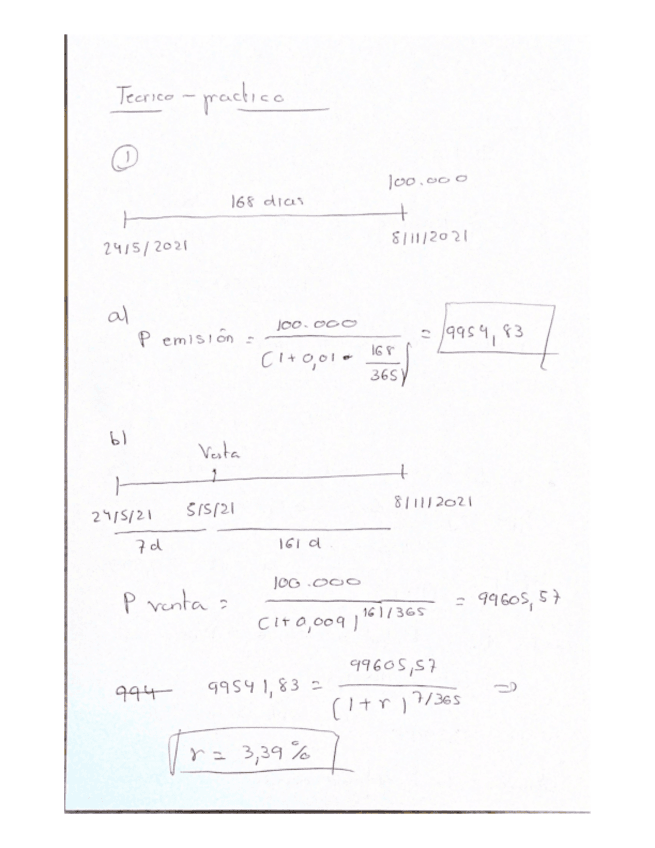 Teorico - practico
1
100.000
168 dias
24/5/2021
8/11/2021
a)
P emisión = 100.000 / (1 + 0,01 · 168/365) = 9954,83
b)
Venta
24/5/21 5/5/21 8/11/2021
7d 161 d
P venta = 100.000 / (1 + 0,009)^161/365 = 99605,57
994 99541,83 = 99605,57 / (1 + r)^7/365 =>
r = 3,39 %